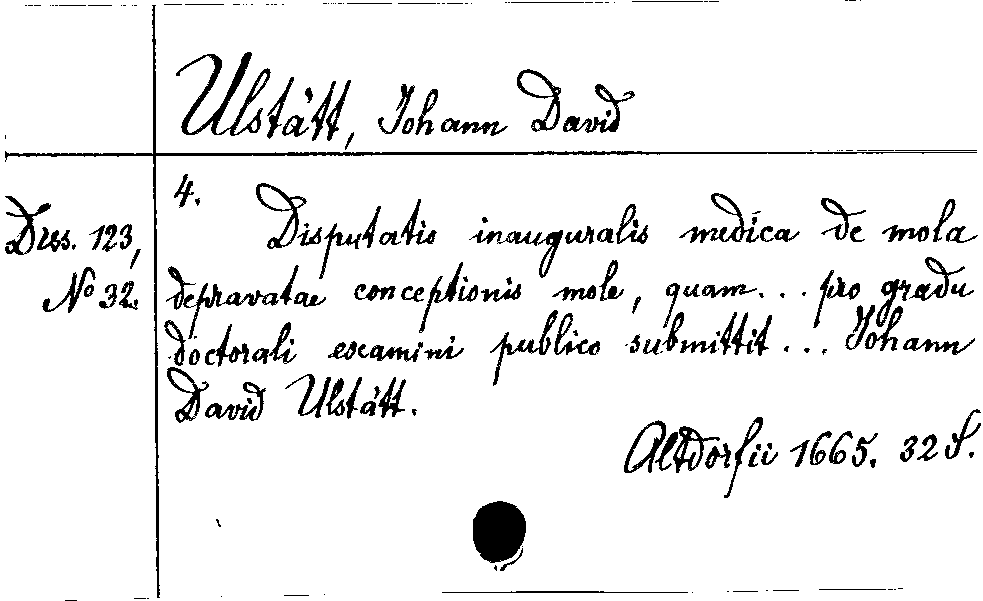 Ulstätt, Johann David
4.
Diss. 123,
No 32.
Disputatio inauguralis medica de mola
depravatae conceptionis mole, quam... pro gradu
doctorali examini publico submittit... Johann
David Ulstätt.
Altdorfii 1665. 32 S.